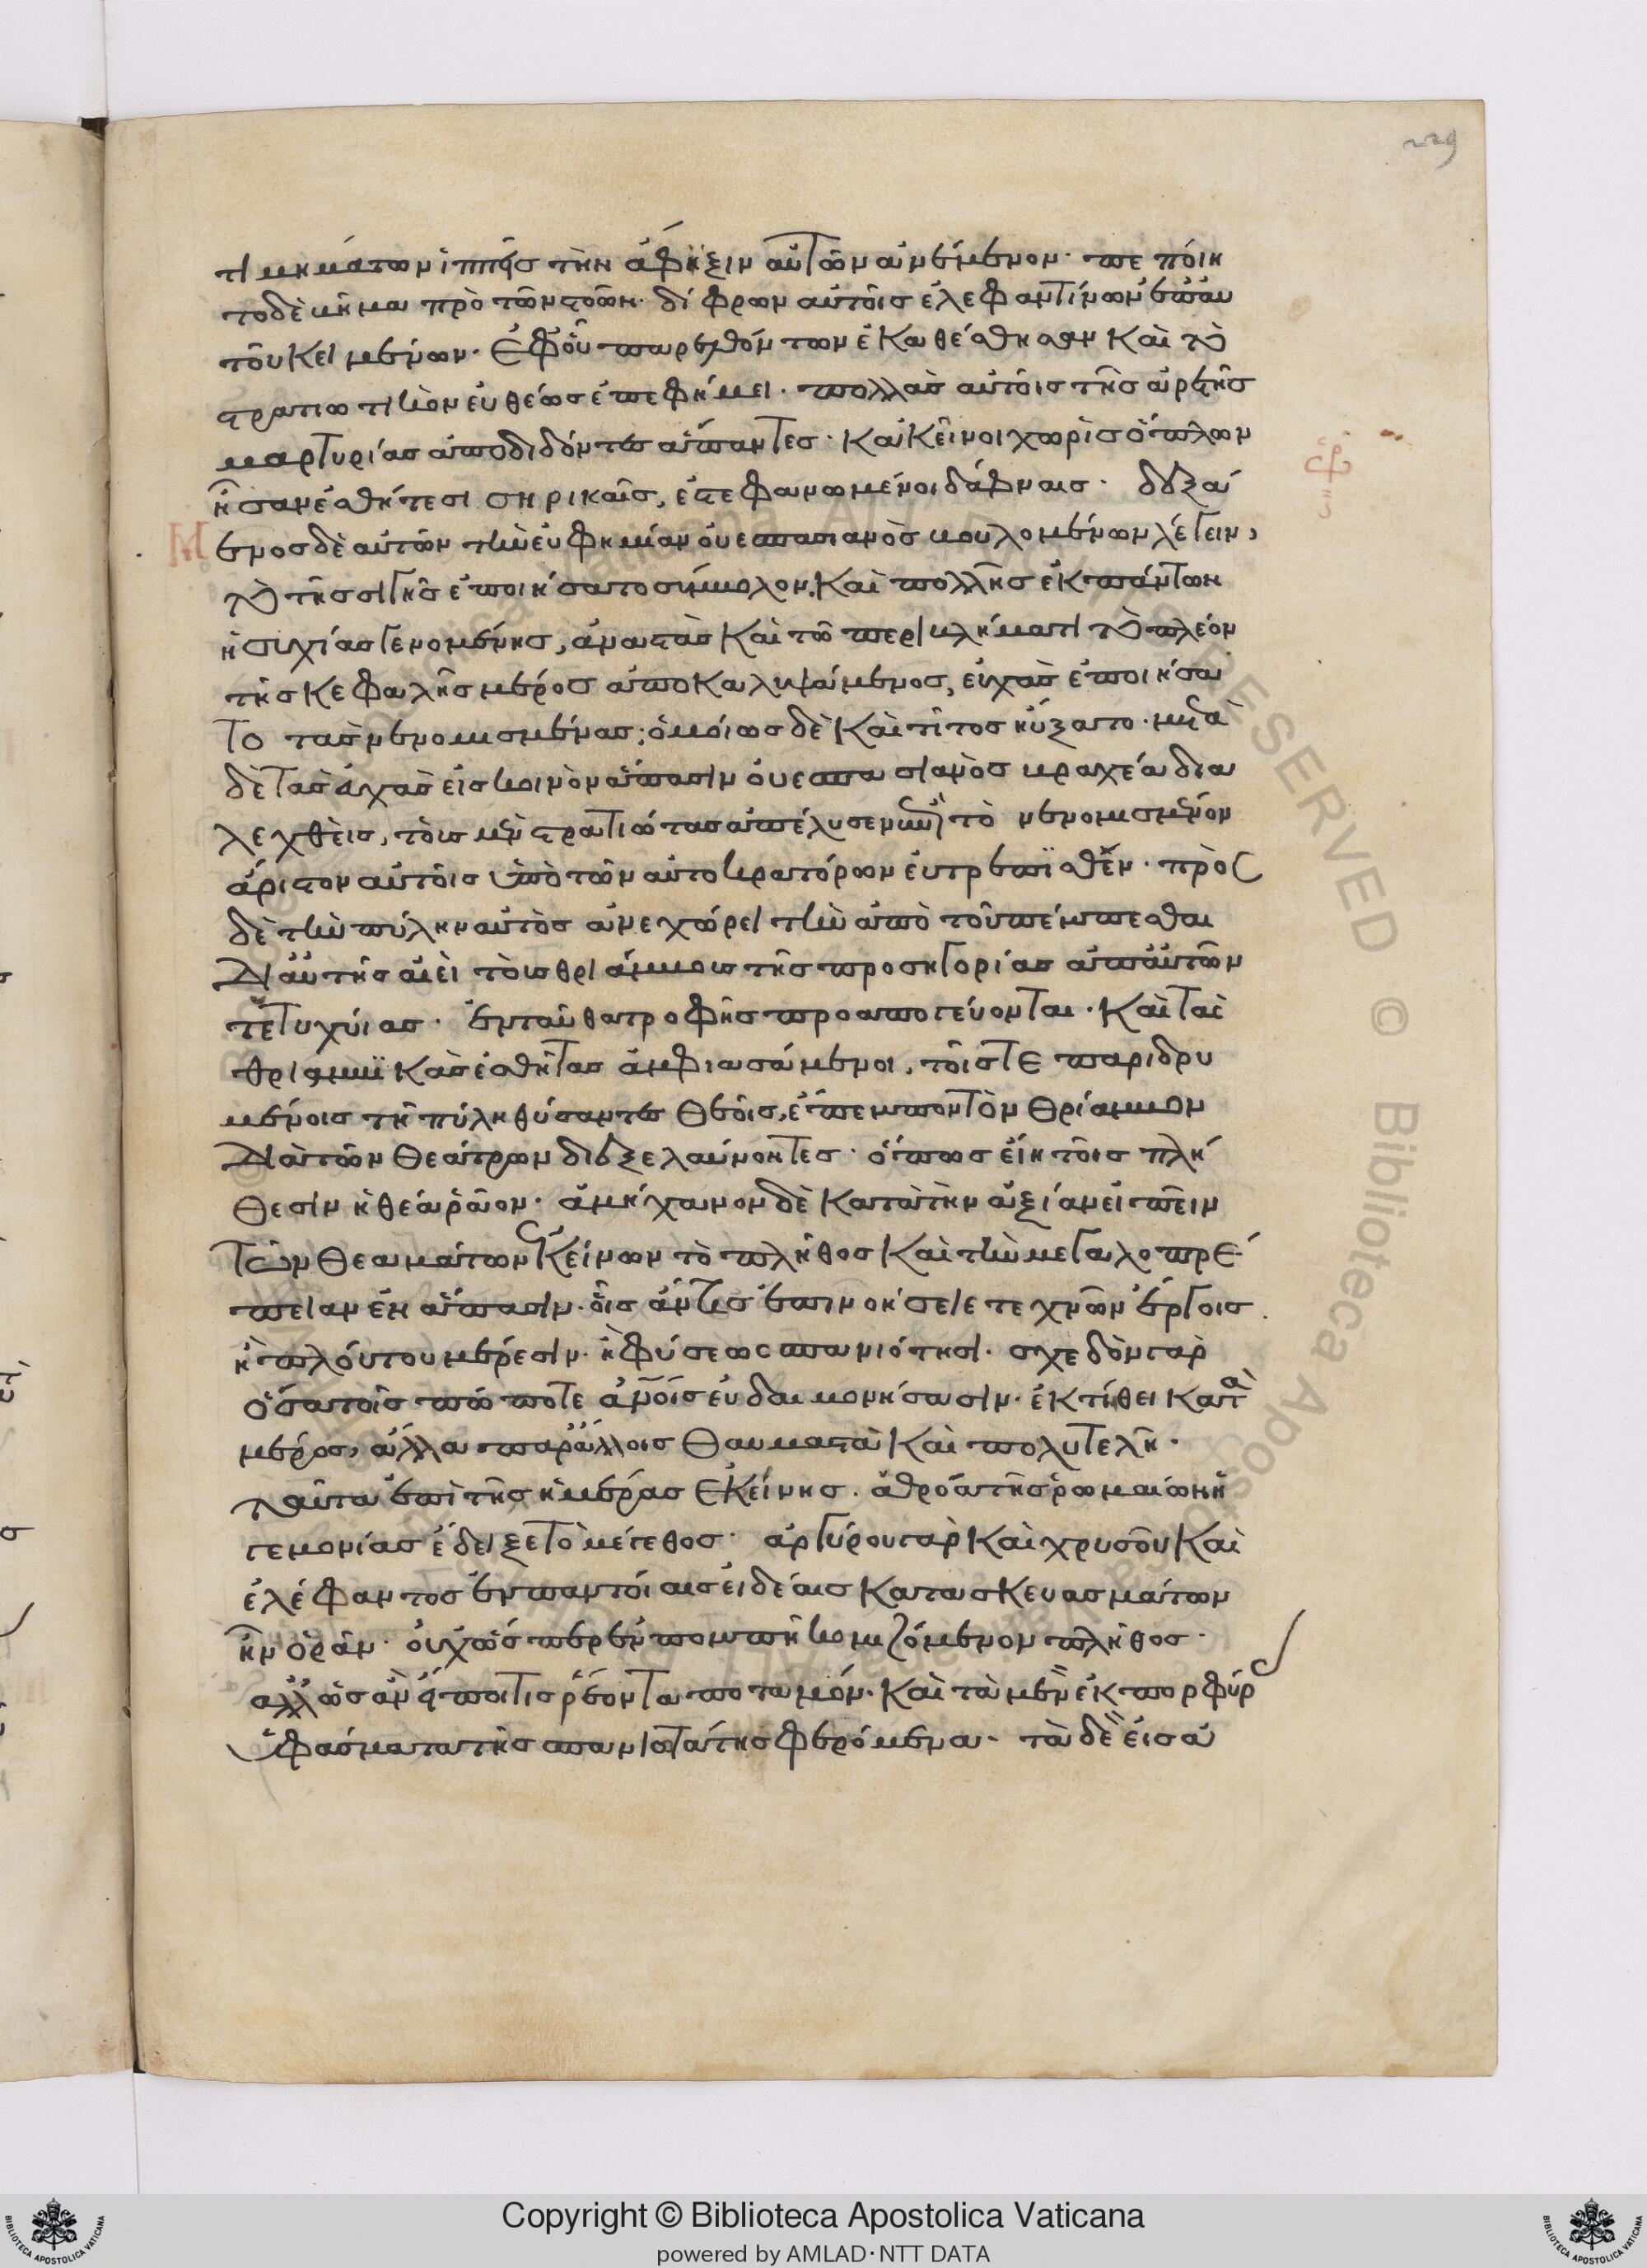 τιμημάτων ἱππεῖς τὴν ἄφιξιν αὐτῶν ἀνεμένενον· πεποίη
το δὲ βῆμα πρὸ τῶν στοῶν· δίφρων αὐτοῖς ἐλεφαντίνων ἐπ' αὐ
τοῦ κειμένων· ἐφ' οὓ παρελθόντων ἐκαθέσθησαν καὶ τὸ
στρατιωτικὸν εὐθέως ἐπεφήμει· πολλὰς αὐτοῖς τῆς ἀρετῆς
μαρτυρίας ἀποδιδόντες ἅπαντες· κἀκεῖνοι χωρὶς ὅπλων
ἦσαν ἐσθήτεσι σηρικαῖς, ἐστεφανωμένοι δάφναις· δεξά
μενος δὲ αὐτῶν τὴν εὐφημίαν οὐεσπασιανὸς βουλομένων λέγειν,
τὸ τῆς σιγῆς ἐποιήσατο σύμβολον. καὶ πολλῆς ἐκ πάντων
ἡσυχίας γενομένης, ἀναστὰς καὶ τῶ περιβλήματι τὸ πλέον
τῆς κεφαλῆς μέρος ἀποκαλυψάμενος, εὐχὰς ἐποιήσα
το τὰς νενομισμένας· ὁμοίως δὲ καὶ τίτος ηὔξατο· μετὰ
δὲ τὰς εὐχὰς εἰς κοινὸν ἅπασιν οὐεσπασιανὸς βραχέα δια
λεχθεὶς, τοὺς μὲν στρατιώτας ἀπέλυσεν ἐπὶ τὸ νενομισμένον
ἄριστον αὐτοῖς ὑπὸ τῶν αὐτοκρατόρων εὐτρεπισθέν· πρὸς
δὲ τὴν πύλην αὐτὸς ἀνεχώρει τὴν ἀπὸ τοῦ πέμπεσθαι
δι' αὐτῆς αἰεὶ τοὺς θριάμβους τῆς προσηγορίας ἀπ' αὐτῶν
τετυχύιας· ἐνταῦθα τροφῆς προαπογεύονται· καὶ τὰς
θριαμβικὰς ἐσθῆτας ἀμφιασάμενοι, τοῖς τε παριδρυ
μένοις τῆ πύλη θύσαντες θεοῖς, ἔπεμπον τὸν θρίαμβον
διὰ τῶν θεάτρων διεξελαύνοντες· ὅπως εἴη τοῖς πλή
θεσιν ἡ θέα ῥᾶον· ἀμήχανον δὲ κατὰ τὴν ἀξίαν εἰπεῖν
τῶν θεαμάτων ἐκείνων τὸ πλῆθος καὶ τὴν μεγαλοπρέ
πειαν ἐν ἅπασιν· οἷς ἄν τις ἐπινοήσειε τεχνῶν ἔργοις
ἢ πλούτου μέρεσιν· ἢ φύσεως σπανιότησι· σχεδὸν γὰρ
ὅσα τοῖς πώποτε ἀνοις εὐδαιμονήσασιν· ἐκτίθει κατὰ
μέρος, ἄλλα παρ' ἄλλοις θαυμαστὰ καὶ πολυτελῆ·
ταῦτα ἐπὶ τῆς ἡμέρας ἐκείνης· ἀθρόα τῆς ῥωμαίων ἡ
γεμονίας ἔδειξε τὸ μέγεθος· ἀργύρου γὰρ καὶ χρυσοῦ καὶ
ἐλέφαντος ἐν παντοίαις εἰδέαις κατασκευασμάτων
ἦν ὁρᾶν· οὐχ ὥσπερ ἐν πομπῆ κομιζόμενον πλῆθος·
ἀλλ' ὡς ἂν εἴποι τις ῥέοντα ποταμόν· καὶ τὰ μὲν ἐκ πορφύρ
ὑφάσματα τῆς σπανιωτάτης φερόμενα· τὰ δὲ εἰς ἀ